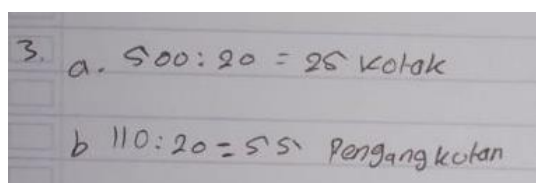 3. a. 500 : 20 = 25 kotak
b 110 : 20 = 55 Pengangkutan